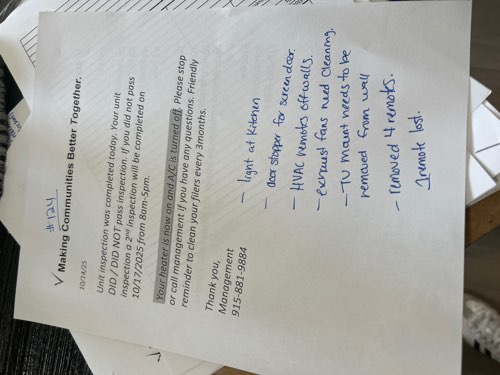 #124
Making Communities Better Together.
10/14/25
Unit inspection was completed today. Your unit
DID / DID NOT pass inspection. If you did not pass
inspection a 2nd inspection will be completed on
10/17/2025 from 8am-5pm.
Your heater is now on and A/C is turned off. Please stop
or call management if you have any questions. Friendly
reminder to clean your filers every 3months.
Thank you,
Management
915-881-9884
- light at Kitchen
- door stopper for screen door.
- HVAC remotes off walls.
- exhaust fans need cleaning.
- TV mount needs to be
removed from wall
- removed 4 remotes.
1 remote lost.